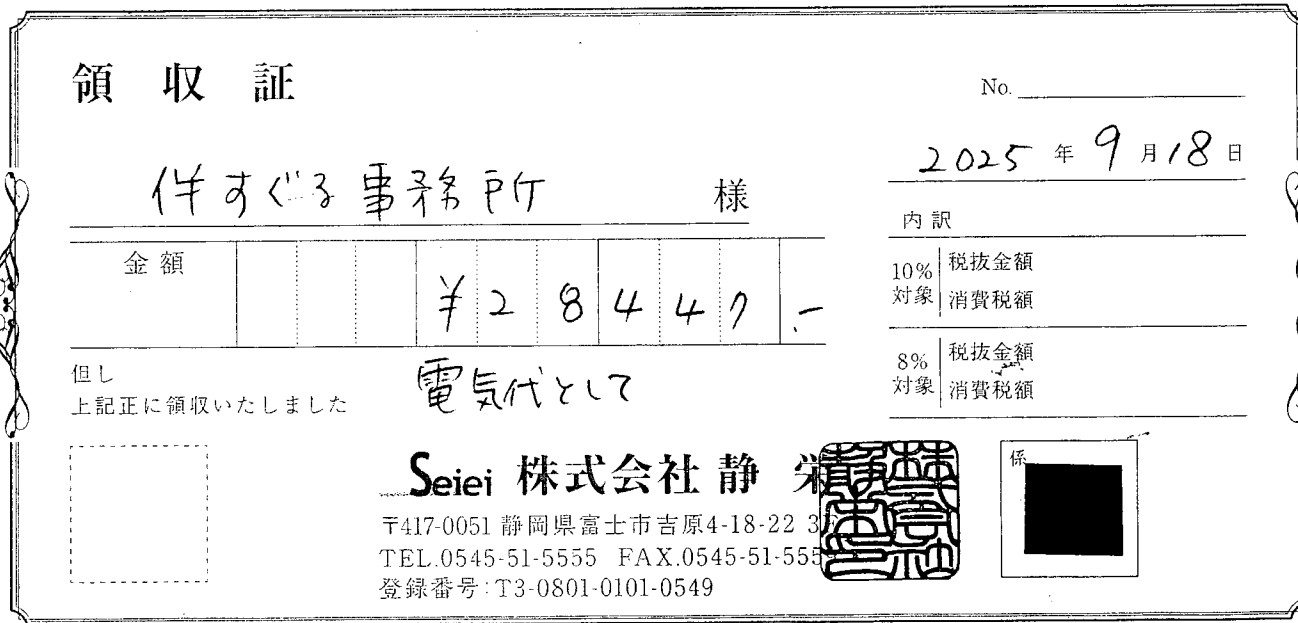 領収証
No.
2025年9月18日
伴すぐる事務所 様
金額 ¥28447.-
但し 電気代として
上記正に領収いたしました
内訳
10%対象 税抜金額
消費税額
8%対象 税抜金額
消費税額
Seiei 株式会社静栄
〒417-0051 静岡県富士市吉原4-18-22
TEL.0545-51-5555 FAX.0545-51-555
登録番号:T3-0801-0101-0549
係